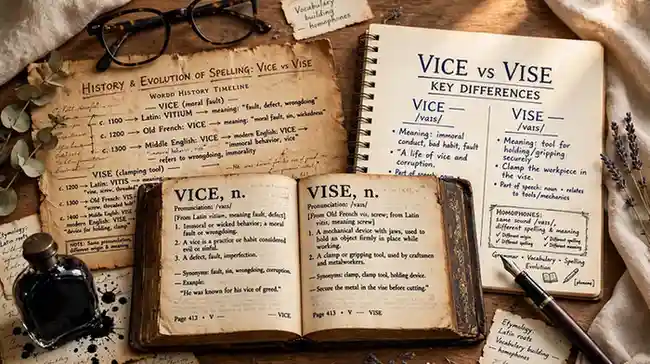 Vocabulary
building
homophones
HISTORY & EVOLUTION OF SPELLING: VICE VS VISE
WORDD HISTORY TIMELINE
VICE (moral fault) —
c. 1100 → Latin: VITIUM → meaning: "fault, defect, wrongdoing"
c. 1200 → Old French: VICE → meaning: "moral fault, sin, wickedness"
c. 1300 → Middle English: VICE → modern English: VICE →
"immoral behavior, vice"
refers to wrongdoing, immorality
VISE (clamping tool) —
VICE vs VISE
KEY DIFFERENCES
VICE —
/vaɪs/
• Meaning: immoral
conduct, bad habit, fault
• "A life of vice and
corruption.
• Part of speech
VISE —
/vaɪs/
• Meaning: tool for
holding/gripping
securely
• Clamp the workpiece
in the vise.
• Part of speech: noun • relates
to tools/mechanics
HOMOPHONES:
same sound /vaɪs/,
different spelling & meaning
✓ Different origin ✓ Different spelling
✓ Different spelling
Grammar • Vocabulary • Spelling
Evolution
VICE, n.
Pronunciation: /vaɪs/
[From Latin vitium, meaning fault, defect]
1. Immoral or wicked behavior; a moral
fault or wrongdoing.
2. A vice is a practice or habit considered
evil or sinful.
3. A defect, fault, imperfection.
Synonyms: fault, sin, wrongdoing, corruption.
— Example:
"He was known for his vice of greed."
Page 413 • V — VICE
VISE, n.
Pronunciation: /vaɪs/
[From Old French vo, screw; from Latin
vitis, meaning screw]
1. A mechanical device with jaws, used to
hold an object firmly in place while
working.
2. A clamp or gripping tool, used by craftsmen
and metalworkers.
Synonyms: clamp, clamp tool, holding device.
— Example:
"Secure the metal in the vise before cutting."
Page 413 • V — VISE
Etymology:
Latin roots
Vocabulary building
— homophones